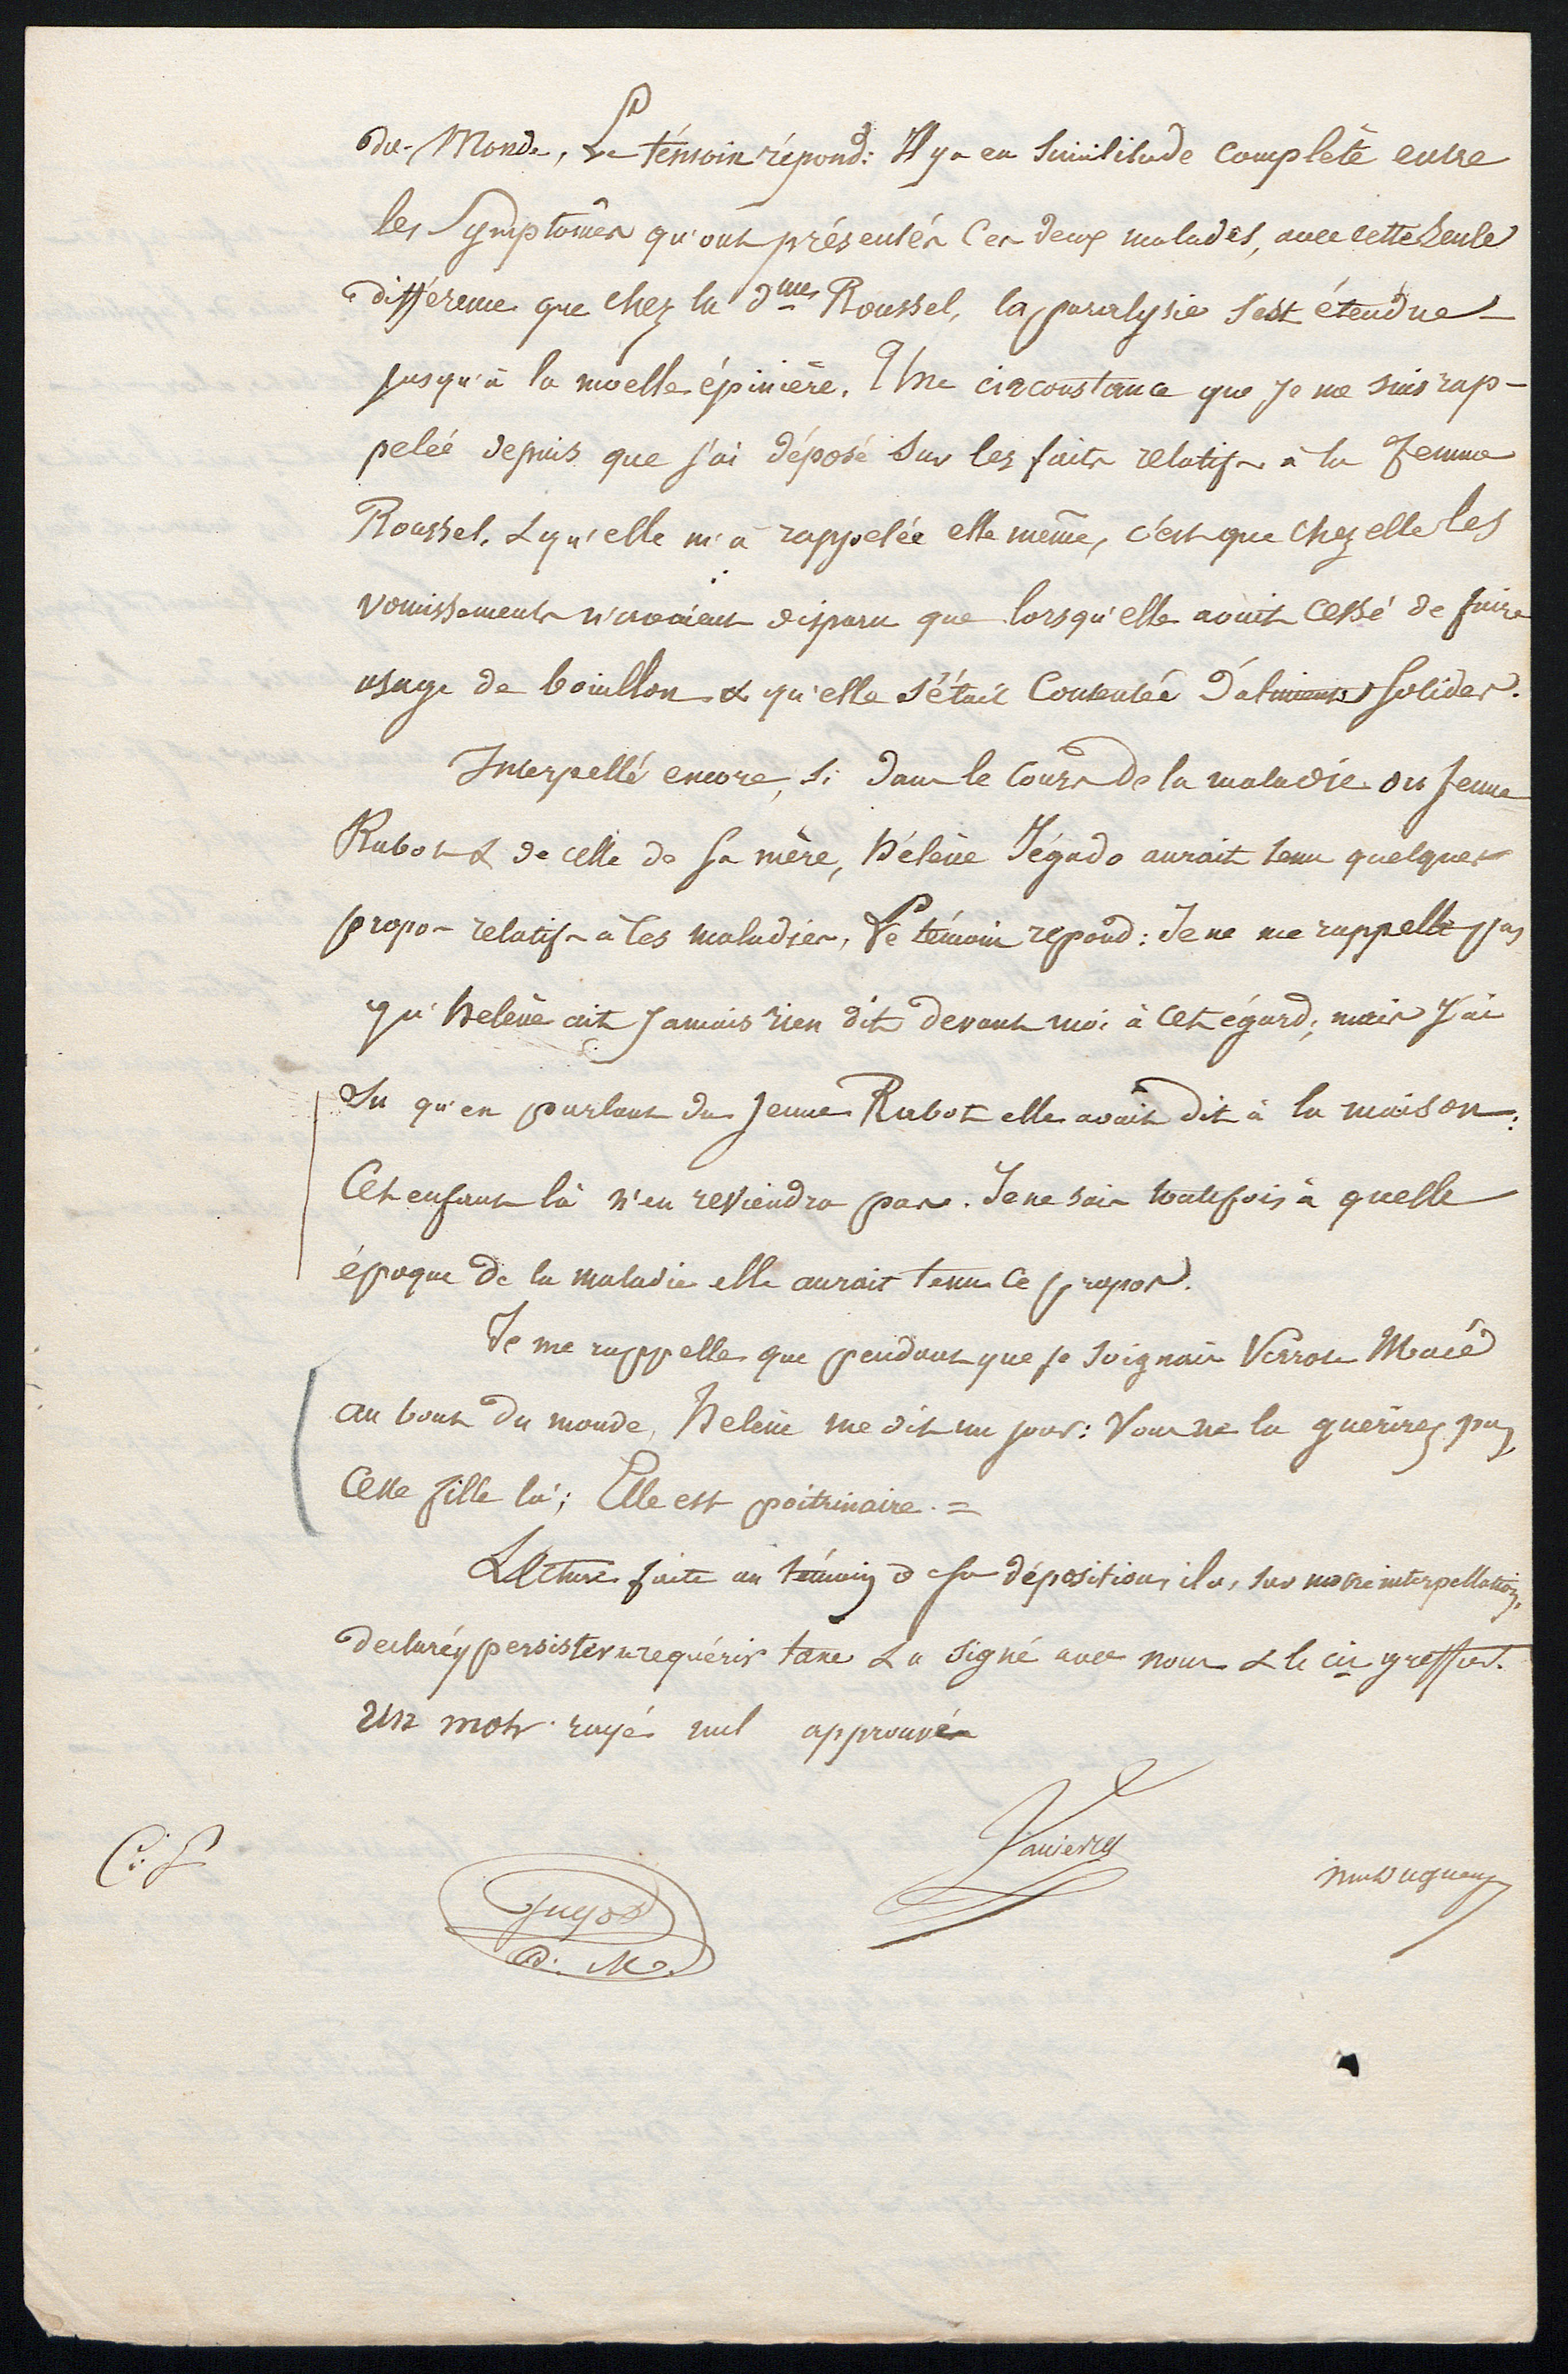 du Monde, Le témoin répond: Il y a eu similitude complète entre
les symptômes qu'ont présentés ces deux malades, avec cette seule
différence que chez la dme Roussel, la paralysie s'est étendue
jusqu'à la moelle épinière. Une circonstance que je me suis rap-
pelée depuis que j'ai déposé sur les faits relatifs à la femme
Roussel, & qu'elle m'a rappelée elle même, c'est que chez elle les
vomissements n'avaient disparu que lorsqu'elle avait cessé de faire
usage de bouillon & qu'elle s'était contentée d'aliments solides.
Interpellé encore, si dans le cours de la maladie du jeune
Rabot & de celle de sa mère, hélène Jégado aurait tenu quelques
propos relatifs à ces maladies, Le témoin repond: Je ne me rappelle pas
qu'helène ait jamais rien dit devant moi à cet égard; mais j'ai
su qu'en parlant du jeune Rabot elle avait dit à la maison:
Cet enfant là n'en reviendra pas. Je ne sais toutefois à quelle
époque de la maladie elle aurait tenu ce propos.
Je me rappelle que pendant que je soignais Perrotte Macé
au bout du monde, helène me dit un jour: Vous ne la guérirez pas,
cette fille là; Elle est poitrinaire. =
Lecture faite au témoin de sa déposition, il a, sur notre interpellation,
déclaré y persister, n requérir taxe & a signé avec nous & le cis greffier.
Un mot rayé nul approuvé
Guyot
D. M.